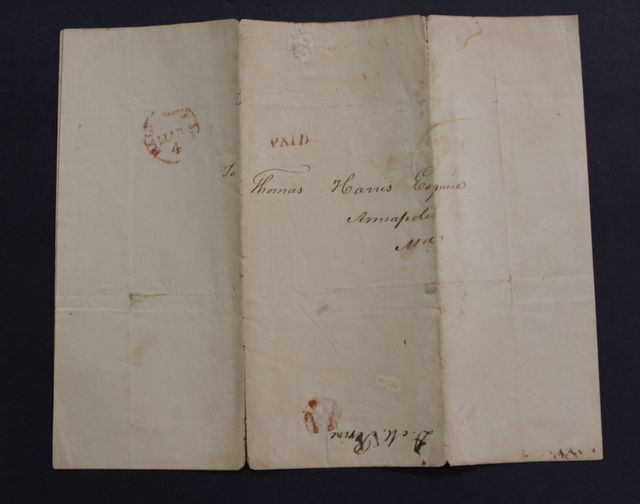 MAR
4
PAID
To
Thomas Harris Esquire
Annapolis
Md
D. M. Perine